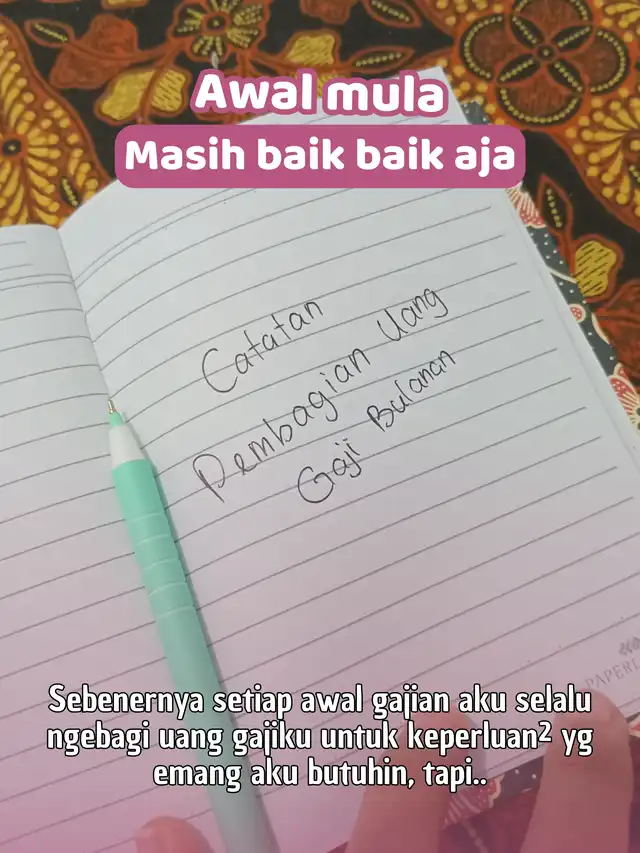 Awal mula
Masih baik baik aja
Catatan
Pembagian Uang
Gaji Bulanan
Sebenernya setiap awal gajian aku selalu
ngebagi uang gajiku untuk keperluan² yg
emang aku butuhin, tapi..